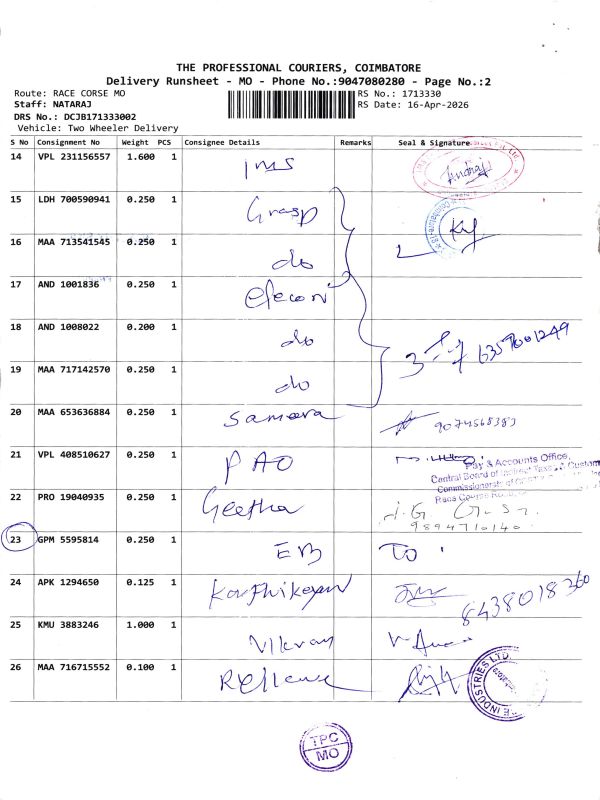 THE PROFESSIONAL COURIERS, COIMBATORE
Delivery Runsheet - MO - Phone No.:9047080280 - Page No.:2
Route: RACE CORSE MO RS No.: 1713330
Staff: NATARAJ RS Date: 16-Apr-2026
DRS No.: DCJB171333002
Vehicle: Two Wheeler Delivery
S No Consignment No Weight PCS Consignee Details Remarks Seal & Signature
14 VPL 231156557 1.600 1 IMS
15 LDH 700590941 0.250 1 Grasp
16 MAA 713541545 0.250 1 do
17 AND 1001836 0.250 1 efecon
18 AND 1008022 0.200 1 do
19 MAA 717142570 0.250 1 do
6357001249
20 MAA 653636884 0.250 1 Samera 9074568383
21 VPL 408510627 0.250 1 PAO
Pay & Accounts Office,
Central Board of Indirect Taxes & Custom
22 PRO 19040935 0.250 1 Geetha
9894710140
23 GPM 5595814 0.250 1 EB TO
24 APK 1294650 0.125 1 Karthikeyan 8438018360
25 KMU 3883246 1.000 1 Vikram
26 MAA 716715552 0.100 1 Reliance
E INDUSTRIES LTD.
TPC
MO